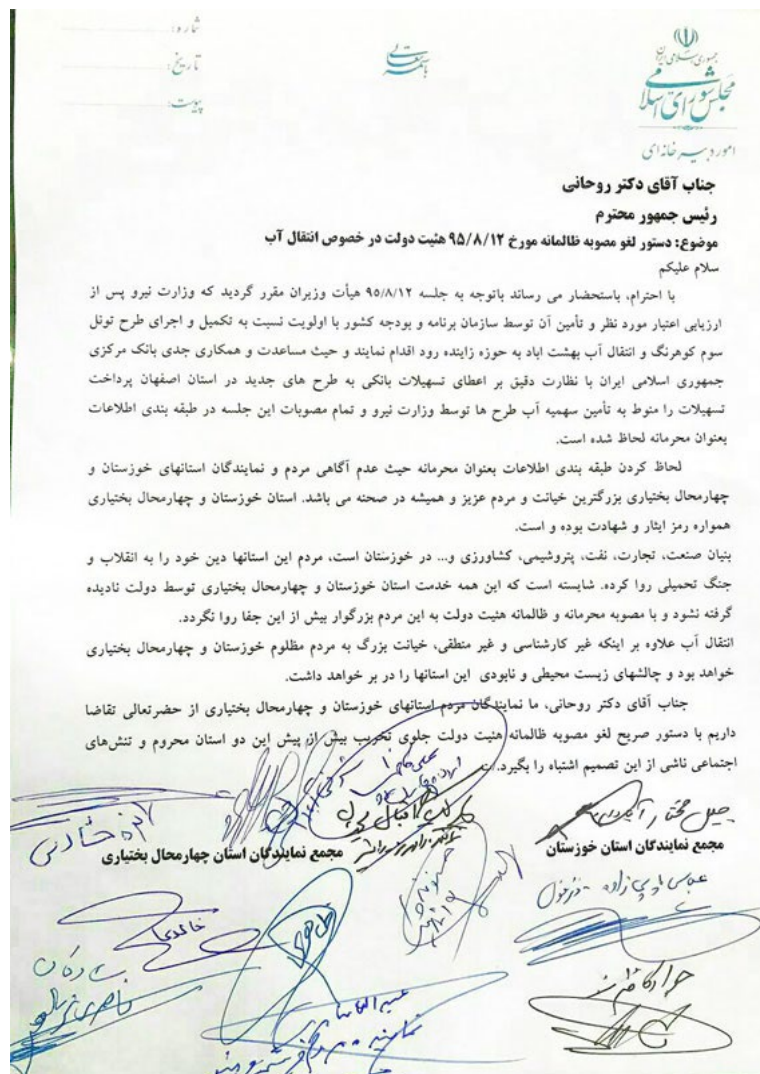 جمهوری اسلامی ایران
مجلس شورای اسلامی
امور دبیرخانه‌ای
باسمه تعالی
شماره:
تاریخ:
پیوست:
جناب آقای دکتر روحانی
رئیس جمهور محترم
موضوع: دستور لغو مصوبه ظالمانه مورخ ۹۵/۸/۱۲ هئیت دولت در خصوص انتقال آب
سلام علیکم
با احترام، باستحضار می رساند باتوجه به جلسه ۹۵/۸/۱۲ هیأت وزیران مقرر گردید که وزارت نیرو پس از
ارزیابی اعتبار مورد نظر و تأمین آن توسط سازمان برنامه و بودجه کشور با اولویت نسبت به تکمیل و اجرای طرح تونل
سوم کوهرنگ و انتقال آب بهشت اباد به حوزه زاینده رود اقدام نمایند و حیث مساعدت و همکاری جدی بانک مرکزی
جمهوری اسلامی ایران با نظارت دقیق بر اعطای تسهیلات بانکی به طرح های جدید در استان اصفهان پرداخت
تسهیلات را منوط به تأمین سهمیه آب طرح ها توسط وزارت نیرو و تمام مصوبات این جلسه در طبقه بندی اطلاعات
بعنوان محرمانه لحاظ شده است.
لحاظ کردن طبقه بندی اطلاعات بعنوان محرمانه حیث عدم آگاهی مردم و نمایندگان استانهای خوزستان و
چهارمحال بختیاری بزرگترین خیانت و مردم عزیز و همیشه در صحنه می باشد. استان خوزستان و چهارمحال بختیاری
همواره رمز ایثار و شهادت بوده و است.
بنیان صنعت، تجارت، نفت، پتروشیمی، کشاورزی و... در خوزستان است، مردم این استانها دین خود را به انقلاب و
جنگ تحمیلی روا کرده. شایسته است که این همه خدمت استان خوزستان و چهارمحال بختیاری توسط دولت نادیده
گرفته نشود و با مصوبه محرمانه و ظالمانه هئیت دولت به این مردم بزرگوار بیش از این جفا روا نگردد.
انتقال آب علاوه بر اینکه غیر کارشناسی و غیر منطقی، خیانت بزرگ به مردم مظلوم خوزستان و چهارمحال بختیاری
خواهد بود و چالشهای زیست محیطی و نابودی این استانها را در بر خواهد داشت.
جناب آقای دکتر روحانی، ما نمایندگان مردم استانهای خوزستان و چهارمحال بختیاری از حضرتعالی تقاضا
داریم با دستور صریح لغو مصوبه ظالمانه هئیت دولت جلوی تخریب بیش از پیش این دو استان محروم و تنش‌های
اجتماعی ناشی از این تصمیم اشتباه را بگیرد.
مجمع نمایندگان استان خوزستان
مجمع نمایندگان استان چهارمحال بختیاری